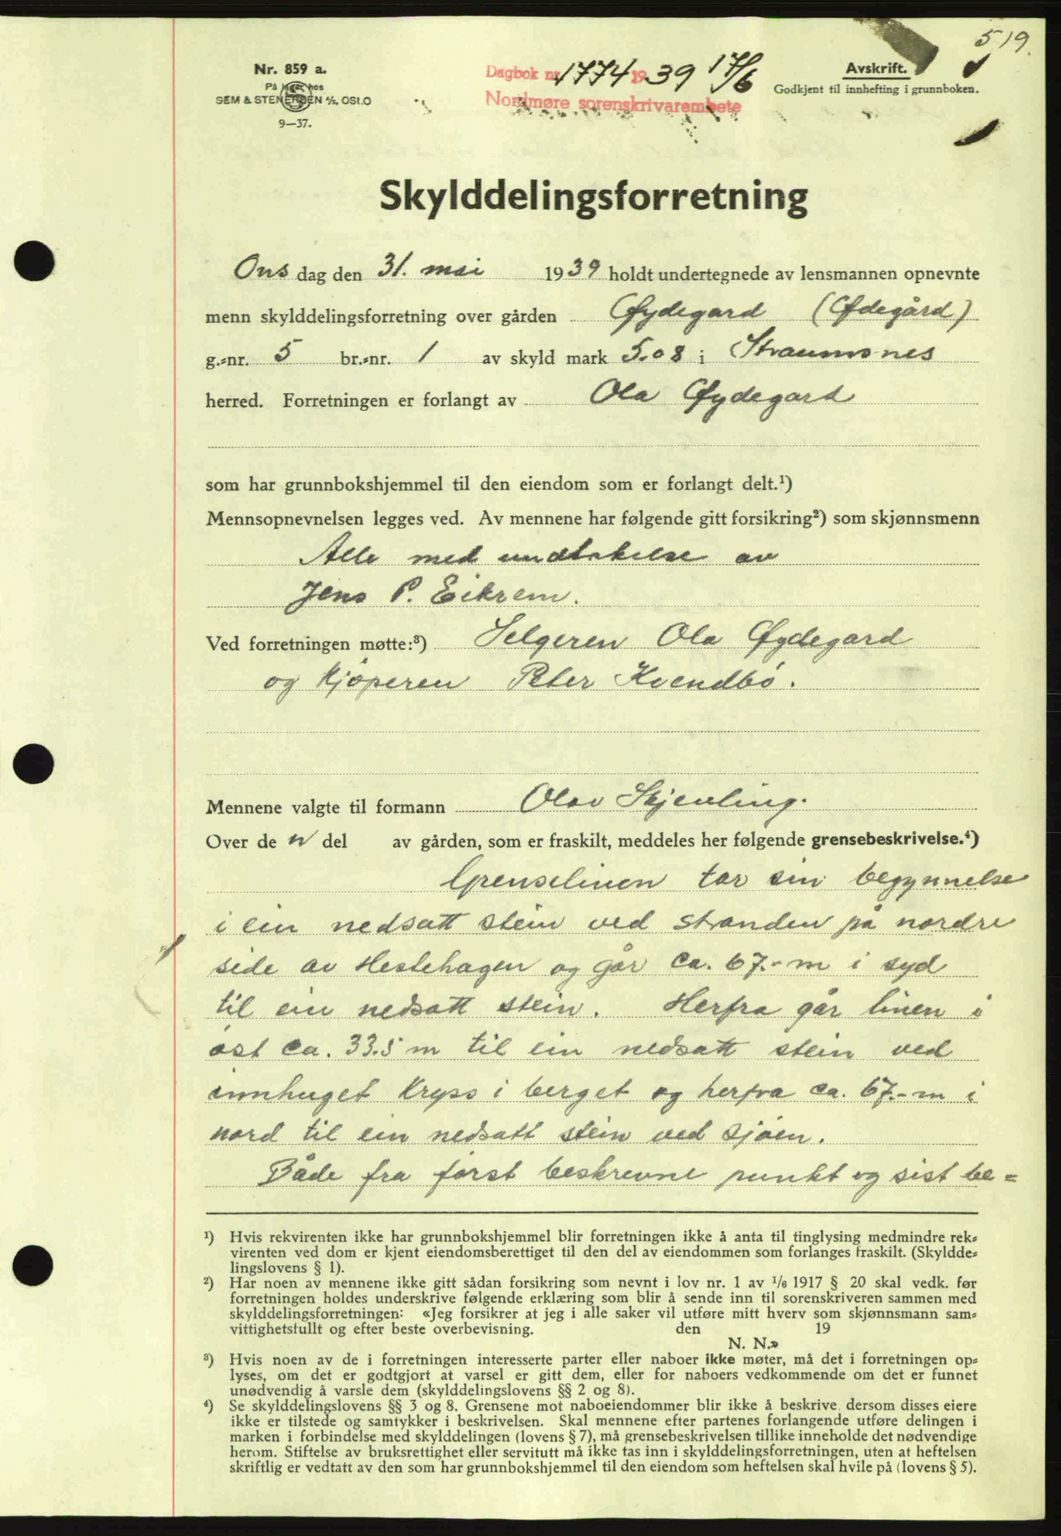 519.
Nr. 859 a.
På lager hos
SEM & STENERSEN A/S, OSLO
9—37.
Dagbok nr. 1774 1939 17/6
Nordmøre sorenskrivarembete
Avskrift.
Godkjent til innhefting i grunnboken.
Skylddelingsforretning
Ons dag den 31. mai 1939 holdt undertegnede av lensmannen opnevnte
menn skylddelingsforretning over gården Øydegard (Ødegård)
g.-nr. 5 br.-nr. 1 av skyld mark 5.08 i Straumsnes
herred. Forretningen er forlangt av Ola Øydegard
som har grunnbokshjemmel til den eiendom som er forlangt delt.¹)
Mennsopnevnelsen legges ved. Av mennene har følgende gitt forsikring²) som skjønnsmenn
Alle med undtakelse av
Jens P. Eikrem.
Ved forretningen møtte:³) Selgeren Ola Øydegard
og kjøperen Peter Kvendbö.
Mennene valgte til formann Olav Skjevling.
Over de n del av gården, som er fraskilt, meddeles her følgende grensebeskrivelse.⁴)
Grenselinen tar sin begynnelse
i ein nedsatt stein ved stranden på nordre
side av Hestehagen og går ca. 67.- m i syd
til ein nedsatt stein. Herfra går linen i
øst ca. 33.5 m til ein nedsatt stein ved
innhuget kryss i berget og herfra ca. 67.- m i
nord til ein nedsatt stein ved sjøen.
Både fra først beskrevne punkt og sist be=
¹) Hvis rekvirenten ikke har grunnbokshjemmel blir forretningen ikke å anta til tinglysing medmindre rek-
virenten ved dom er kjent eiendomsberettiget til den del av eiendommen som forlanges fraskilt. (Skyldde-
lingslovens § 1).
²) Har noen av mennene ikke gitt sådan forsikring som nevnt i lov nr. 1 av 1/6 1917 § 20 skal vedk. før
forretningen holdes underskrive følgende erklæring som blir å sende inn til sorenskriveren sammen med
skylddelingsforretningen: «Jeg forsikrer at jeg i alle saker vil utføre mitt hverv som skjønnsmann sam-
vittighetsfullt og efter beste overbevisning. den 19
N. N.»
³) Hvis noen av de i forretningen interesserte parter eller naboer ikke møter, må det i forretningen op-
lyses, om det er godtgjort at varsel er gitt dem, eller for naboers vedkommende om det er funnet
unødvendig å varsle dem (skylddelingslovens §§ 2 og 8).
⁴) Se skylddelingslovens §§ 3 og 8. Grensene mot naboeiendommer blir ikke å beskrive dersom disses eiere
ikke er tilstede og samtykker i beskrivelsen. Skal mennene efter partenes forlangende utføre delingen i
marken i forbindelse med skylddelingen (lovens § 7), må grensebeskrivelsen tillike inneholde det nødvendige
herom. Stiftelse av bruksrettighet eller servitutt må ikke tas inn i skylddelingsforretningen, uten at heftelsen
skriftlig er vedtatt av den som har grunnbokshjemmel til den eiendom som heftelsen skal hvile på (lovens § 5).